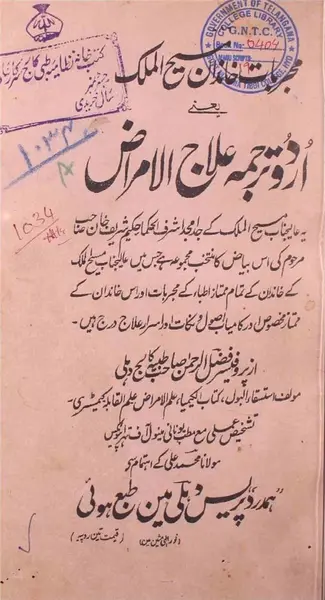 GOVERNMENT OF TELANGANA
COLLEGE LIBRARY
G.N.T.C.
0404
کتب خانہ نظامیہ طبی کالج
مجربات خاندان مسیح الملک
یعنے
اردو ترجمہ علاج الامراض
1034
1034
یہ عالیجناب مسیح الملک کے جد امجد اشرف الحکما حکیم شریف خان صاحب
مرحوم کی اس بیاض کا منتخب مجموعہ ہے جس میں عالیجناب مسیح الملک
کے خاندان کے تمام ممتاز اطباء کے مجربات اور اس خاندان کے
ممتاز مخصوص اور کامیاب اصول و نکات اور اسرار علاج درج ہیں۔
از پروفیسر فضل الرحمن صاحب طبیہ کالج دہلی
مولف استسقار البول، کتاب الکیمیا، علم الامراض علم القابلہ کیمسٹری۔
تشخیص عملی مع مطب یونانی مینول آف
مولانا محمد علی کے اہتمام سے
ہمدرد پریس دہلی میں طبع ہوئی
(قیمت تین روپیہ)